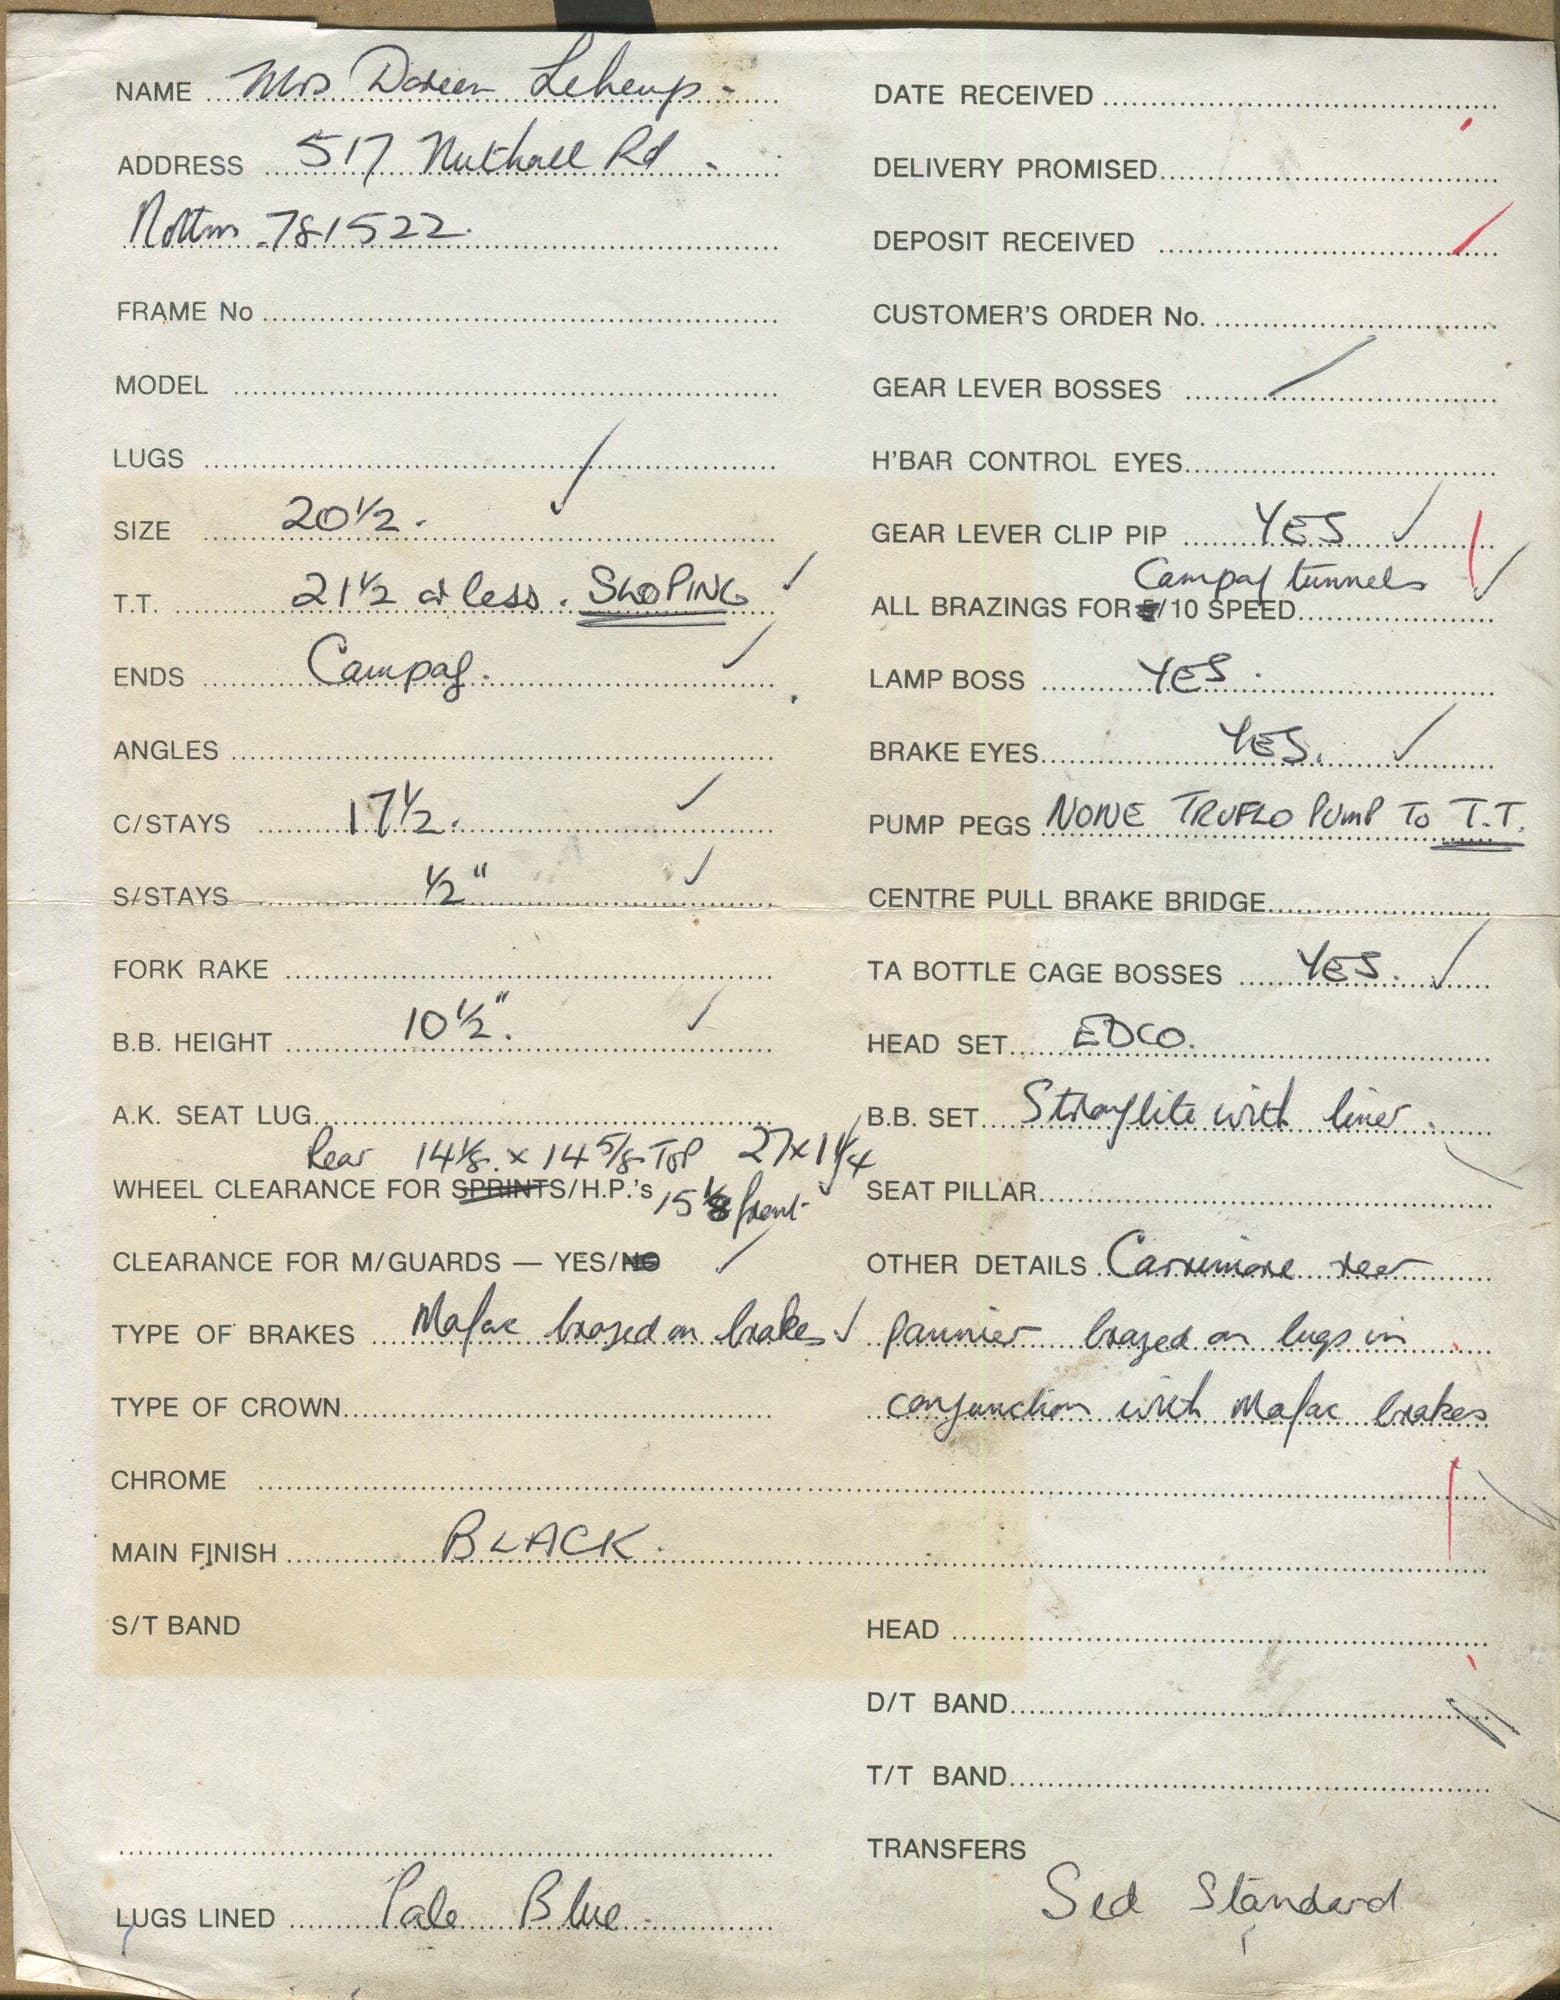 NAME Mrs Doreen Leheup
ADDRESS 517 Nuthall Rd
Nottm 781522
FRAME No
MODEL
LUGS
SIZE 20 1/2
T.T. 21 1/2 or less. SLOPING
ENDS Campag.
ANGLES
C/STAYS 17 1/2.
S/STAYS 1/2"
FORK RAKE
B.B. HEIGHT 10 1/2".
A.K. SEAT LUG
Rear 14 1/8 x 14 5/8 TOP 27 x 1 1/4
WHEEL CLEARANCE FOR SPRINTS/H.P.'s 15 1/8 front
CLEARANCE FOR M/GUARDS — YES/NO
TYPE OF BRAKES Mafac brazed on brakes
TYPE OF CROWN
CHROME
MAIN FINISH BLACK.
S/T BAND
LUGS LINED Pale Blue
DATE RECEIVED
DELIVERY PROMISED
DEPOSIT RECEIVED
CUSTOMER'S ORDER No.
GEAR LEVER BOSSES
H'BAR CONTROL EYES
GEAR LEVER CLIP PIP YES
Campag tunnels
ALL BRAZINGS FOR 5/10 SPEED
LAMP BOSS YES.
BRAKE EYES YES.
PUMP PEGS NONE TRUFLO PUMP TO T.T.
CENTRE PULL BRAKE BRIDGE
TA BOTTLE CAGE BOSSES YES.
HEAD SET EDCO.
B.B. SET Stronglite with liner
SEAT PILLAR
OTHER DETAILS Carrimore rear
pannier brazed on lugs in
conjunction with Mafac brakes
HEAD
D/T BAND
T/T BAND
TRANSFERS
Sid Standard